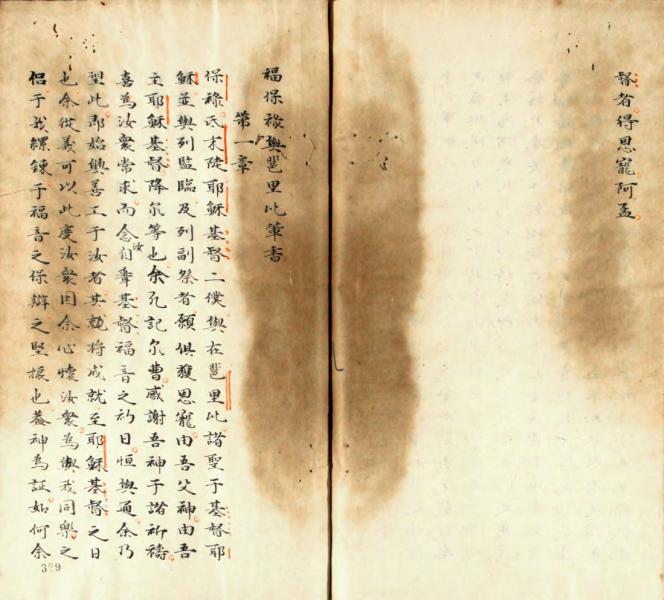 督者得恩寵阿孟
福保祿與里比筆書
第一章
保祿氐末陡耶穌基督二僕與在里比諸聖于基督耶
穌並與列監臨及列副祭者願俱獲恩寵由吾父神由吾
主耶穌基督降尔等也余凡記尔曹感謝吾神于諸祈禱
喜為汝衆常求而念汝自基督福音之初日恒與通余乃
望此即始興善工于汝者其將成就至耶穌基督之日
也余從義可以此度汝衆因余心懷汝衆為與我同樂之
侣于我縲鍊于福音之保辯之堅振也蓋神為証如何余
329